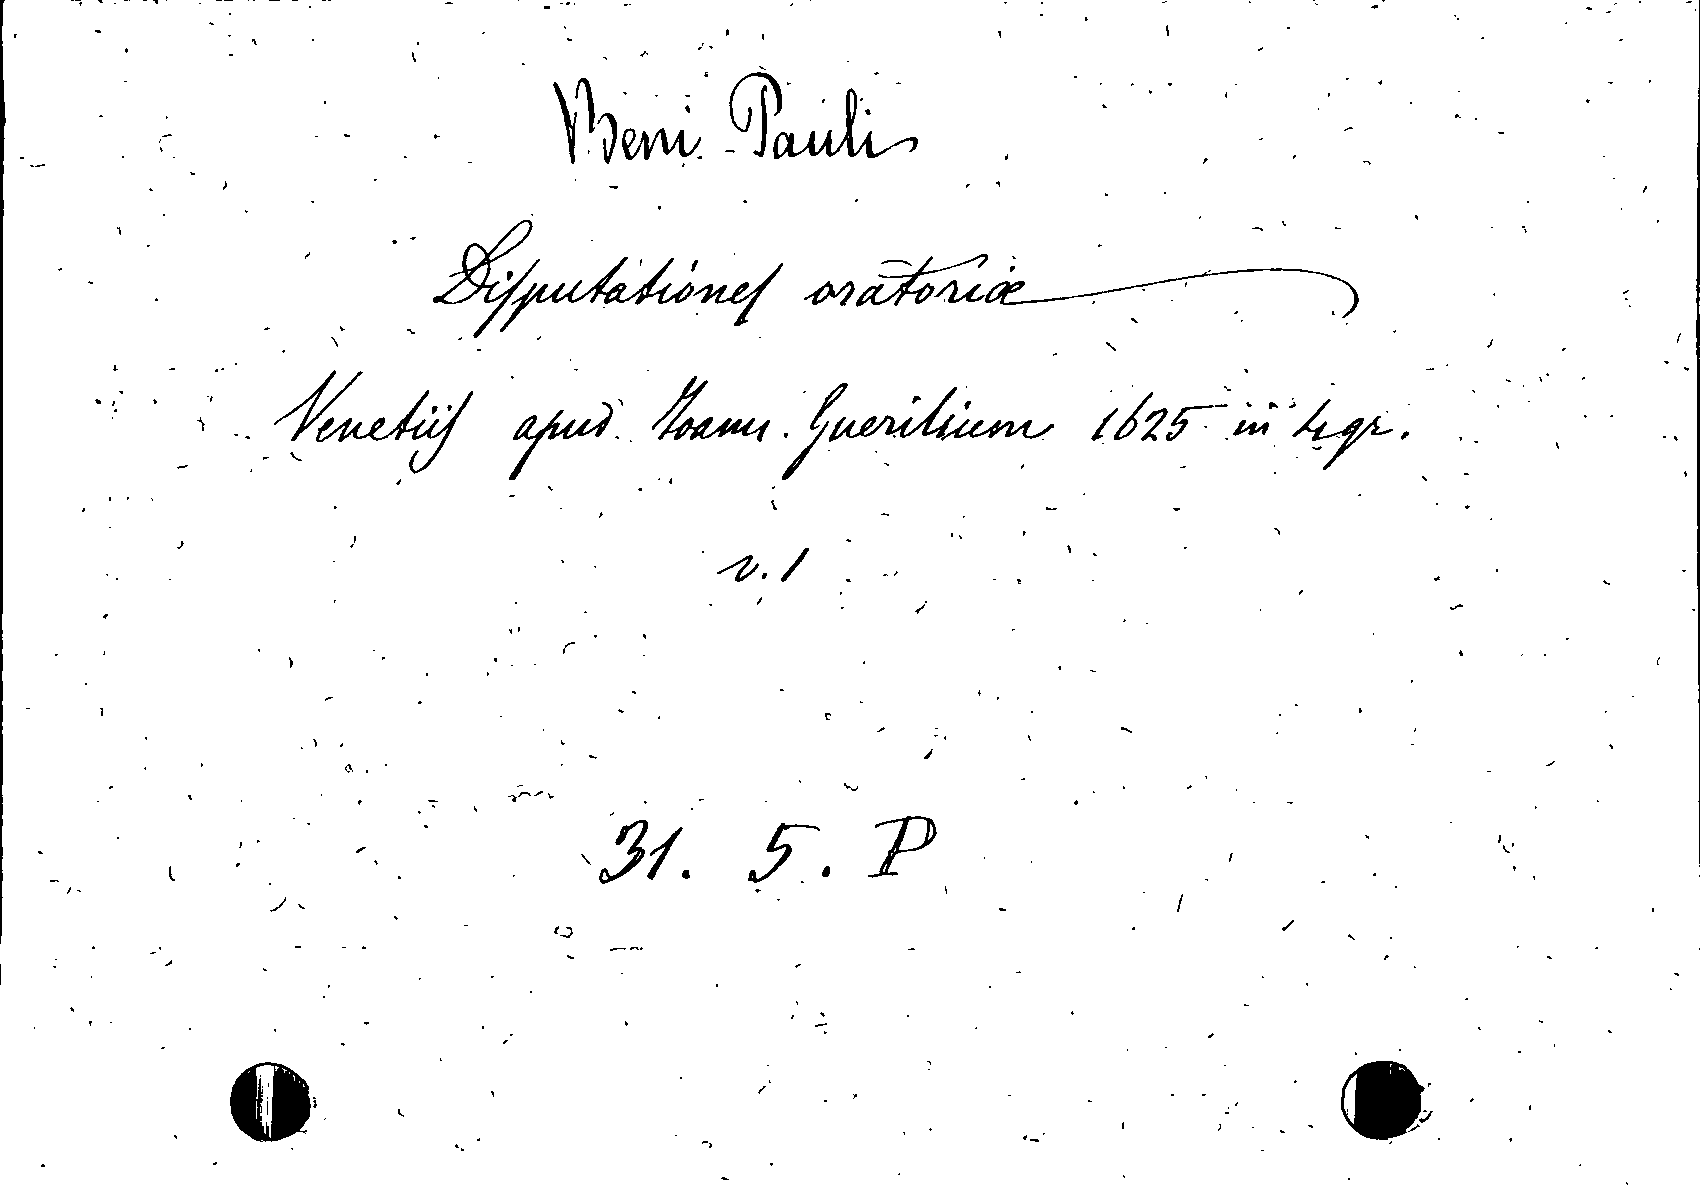 Beni Pauli
Disputationes oratoriæ
Venetiis apud Ioann. Guerilium 1625 in 4 gr.
v. 1
31. 5. P